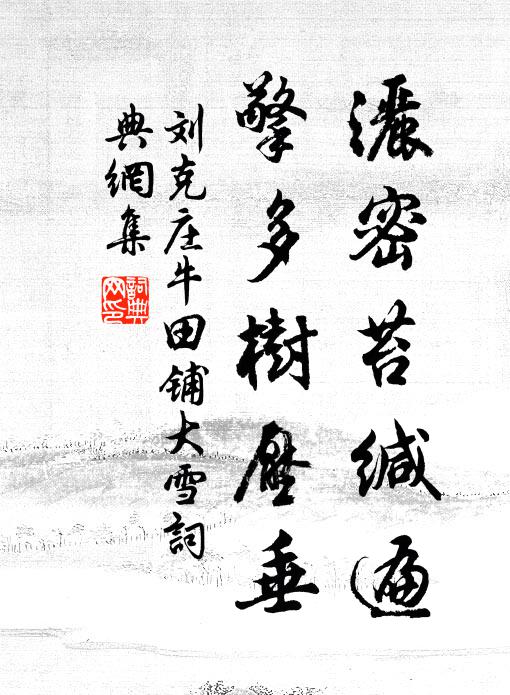 灑密苔緘遍
擎多樹壓垂
刘克庄牛田铺大雪詞
典網集
詞典网印